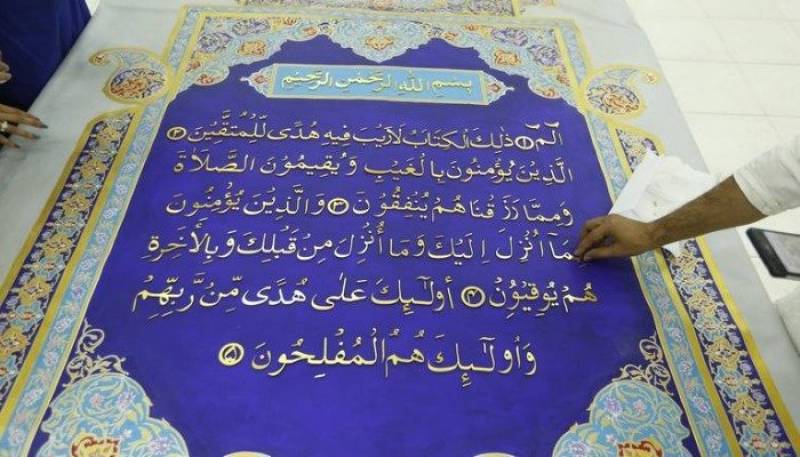 بِسْمِ اللهِ الرَّحْمٰنِ الرَّحِيْمِ
الٓمٓ ۝١ ذٰلِكَ الْكِتَابُ لَارَيْبَ فِيْهِ هُدًى لِّلْمُتَّقِيْنَ ۝٢
الَّذِيْنَ يُؤْمِنُوْنَ بِالْغَيْبِ وَيُقِيْمُوْنَ الصَّلَاةَ
وَمِمَّا رَزَقْنَاهُمْ يُنْفِقُوْنَ ۝٣ وَالَّذِيْنَ يُؤْمِنُوْنَ
بِمَآ اُنْزِلَ اِلَيْكَ وَمَآ اُنْزِلَ مِنْ قَبْلِكَ وَبِالْاٰخِرَةِ
هُمْ يُوْقِنُوْنَ ۝٤ اُولٰٓئِكَ عَلٰى هُدًى مِّنْ رَّبِّهِمْ
وَاُولٰٓئِكَ هُمُ الْمُفْلِحُوْنَ ۝٥